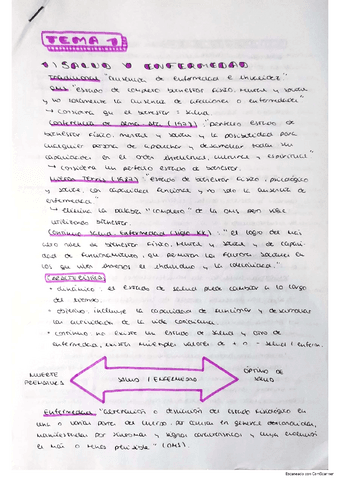 TEMA 1
1) SALUD Y ENFERMEDAD
Tradicional "ausencia de enfermedad e invalidez"
OMS "estado de completo bienestar físico, mental y social
y no solamente la ausencia de afecciones o enfermedades"
→ considera que el bienestar: salud
Conferencia de Alma Ata "estado de
bienestar físico, mental y social y la posibilidad para
cualquier persona de
capacidades en el orden
→ considera un perfecto estado de bienestar.
Milton Terris "estado de bienestar físico, psicológico
y social, con capacidad funcional y no solo la ausencia de
enfermedad."
→ elimina la palabra "completo" de la OMS pero sigue
utilizando bienestar
Continuo Salud-Enfermedad "el logro del más
alto nivel de bienestar físico, mental y social, y de capaci-
dad de funcionamiento, que permitan los factores sociales en
los que viven inmersos el individuo y la colectividad."
CARACTERÍSTICAS
• dinámico: el estado de salud puede cambiar a lo largo
del tiempo.
• objetivo: incluye la capacidad de funcionar y desarrollar
las actividades de la vida cotidiana.
• continuo: no existe un estado de salud y otro de
enfermedad, existen múltiples valores de + o - salud / enferm.
MUERTE
PREMATURA
SALUD / ENFERMEDAD
ÓPTIMO DE
SALUD
Enfermedad "alteración o desviación del estado fisiológico en
una o varias partes del cuerpo, por causas en general desconocidas,
manifestada por síntomas y signos característicos y cuya evolución
es más o menos previsible" (OMS).
Escaneado con CamScanner